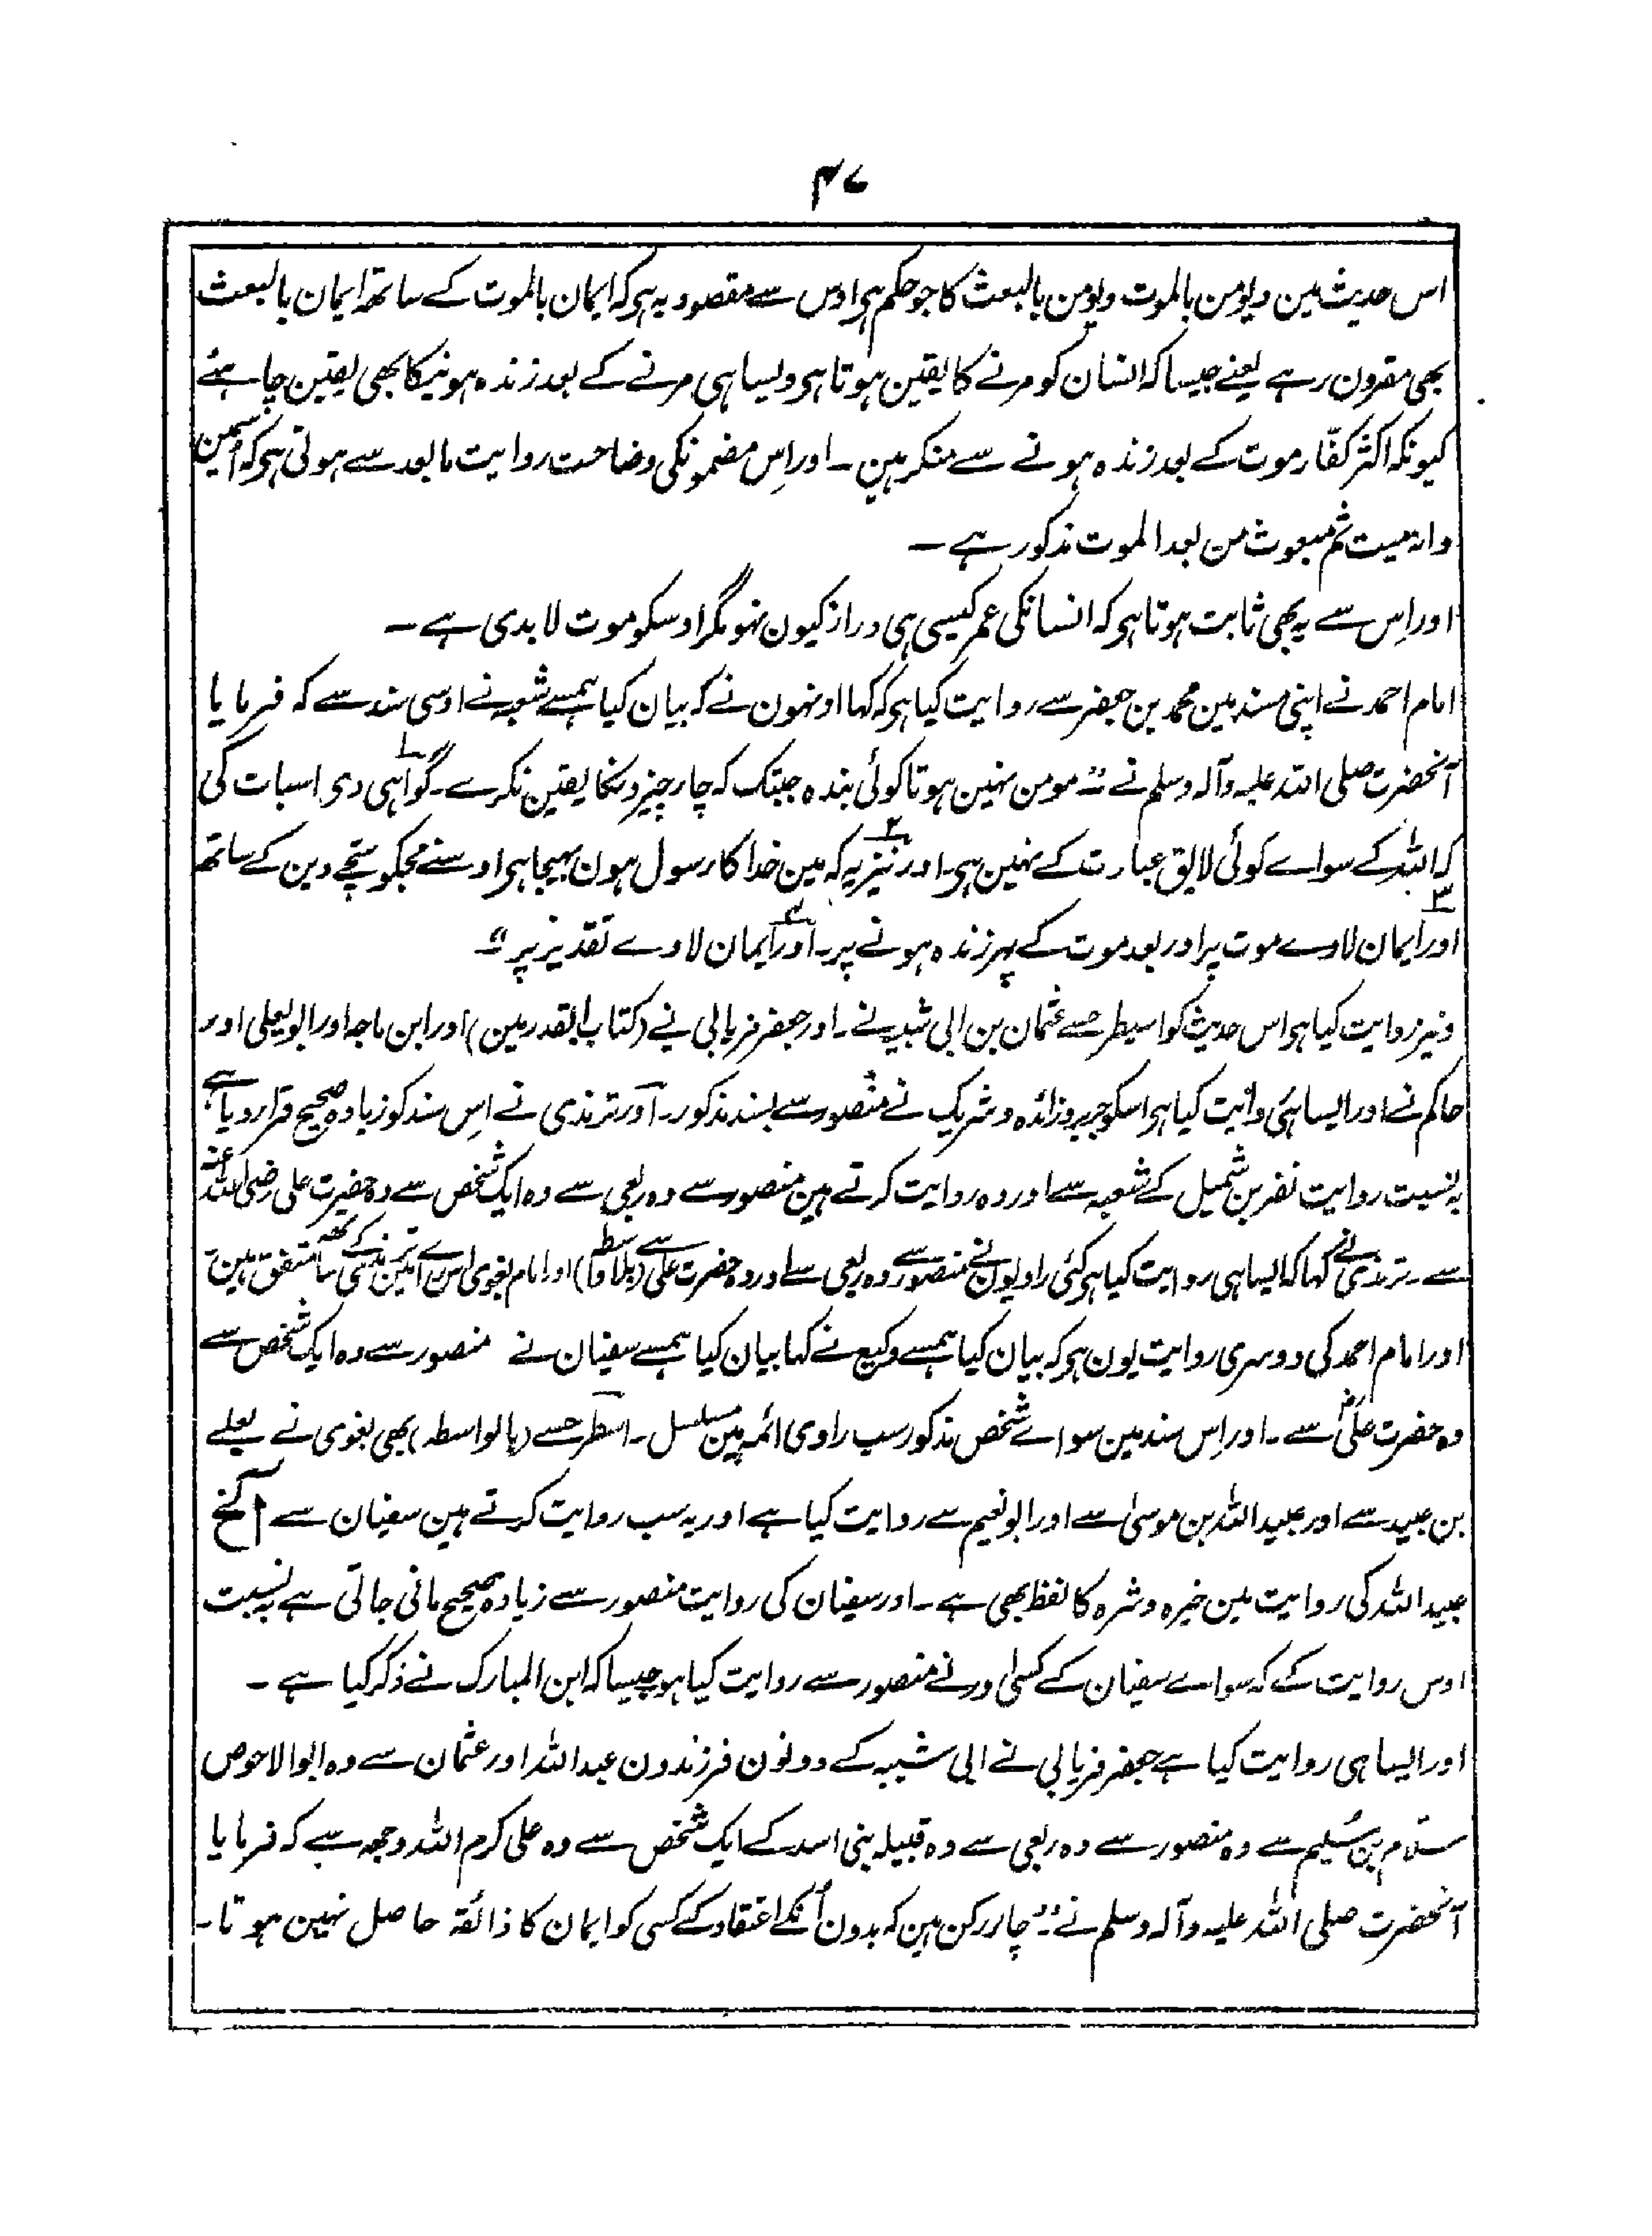 ۴۷
اس حدیث مین ویومن بالموت ویومن بالبعث کا جو حکم ہی اوس سے مقصود یہ ہی کہ ایمان بالموت کے ساتھ ایمان بالبعث
بھی مقرون رہے یعنے جیسا کہ انسان کو مرنے کا یقین ہوتا ہی ویسا ہی مرنے کے بعد زندہ ہونیکا بھی یقین چاہئے
کیونکہ اکثر کفّار موت کے بعد زندہ ہونے سے منکر ہین ۔ اور اِس مضمونکی وضاحت روایت مابعد سے ہوتی ہی کہ اُسمین
وانہ میت ثم مبعوث من بعد الموت مذکور ہے ۔
اور اِس سے یہ بھی ثابت ہوتا ہی کہ انسانکی عمر کیسی ہی دراز کیون نہو مگر اوسکو موت لابدی ہے ۔
امام احمد نے اپنی مسند مین محمد بن جعفر سے روایت کیا ہی کہ کہا اونہون نے کہ بیان کیا ہمسے شعبہ نے اوسی سند سے کہ فرمایا
آنحضرت صلی اللہ علیہ وآلہ وسلم نے ” مومن نہین ہوتا کوئی بندہ جبتک کہ چار چیزونکا یقین نکرے ۔ ۱ گواہی دی اسبات کی
کہ اللہ کے سواے کوئی لایق عبادت کے نہین ہی ۔ ۲ اور نیز یہ کہ مین خدا کا رسول ہون بہیجا ہی اوسنے مجکو سچّے دین کے ساتھ
۳ اور ایمان لاوے موت پر اور بعد موت کے پہر زندہ ہونے پر ۔ ۴ اور ایمان لاوے تقدیر پر “ ۔
ونیز روایت کیا ہی اس حدیث کو اسیطرحسے عثمان بن ابی شیبہ نے ۔ اور جعفر فریابی نے (کتاب القدر مین) اور ابن ماجہ اور ابویعلی اور
حاکم نے اور ایسا ہی روایت کیا ہی اسکو جریر وزائدہ وشریک نے منصور سے بسند مذکور ۔ اور ترمذی نے اِس سند کو زیادہ صحیح قرار دیا ہے
بہ نسبت روایت نضر بن شمیل کے شعبہ سے اور وہ روایت کرتے ہین منصور سے وہ ربعی سے وہ ایک شخص سے وہ حضرت علی رضی اللہ عنہ
سے ۔ ترمذی نے کہا کہ ایسا ہی روایت کیا ہی کئی راویون نے منصور سے وہ ربعی سے اور وہ حضرت علی سے (بلا واسطہ) اور امام بغوی اس راے مین ترمذی کے ساتھ متفق ہین
اور امام احمد کی دوسری روایت یون ہی کہ بیان کیا ہمسے وکیع نے کہا بیان کیا ہمسے سفیان نے منصور سے وہ ایک شخص سے
وہ حضرت علیؓ سے ۔ اور اِس سند مین سواے شخص مذکور سب راوی ائمہ ہین مسلسل ۔ اسطرحسے (بالواسطہ) بھی بغوی نے یعلے
بن عبید سے اور عبید اللہ بن موسیٰ سے اور ابونعیم سے روایت کیا ہے اور یہ سب روایت کرتے ہین سفیان سے الخ
عبید اللہ کی روایت مین خیرہ وشرہ کا لفظ بھی ہے ۔ اور سفیان کی روایت منصور سے زیادہ صحیح مانی جاتی ہے بہ نسبت
اوس روایت کے کہ سواے سفیان کے کسی اور نے منصور سے روایت کیا ہو جیسا کہ ابن المبارک نے ذکر کیا ہے ۔
اور ایسا ہی روایت کیا ہے جعفر فریابی نے ابی شیبہ کے دونون فرزندون عبد اللہ اور عثمان سے وہ ابو الاحوص
سلّام بن سُلیم سے وہ منصور سے وہ ربعی سے وہ قبیلہ بنی اسد کے ایک شخص سے وہ علی کرم اللہ وجہہ سے کہ فرمایا
آنحضرت صلی اللہ علیہ وآلہ وسلم نے ” چار رکن ہین کہ بدون اُنکے اعتقاد کے کسی کو ایمان کا ذائقہ حاصل نہین ہوتا ۔